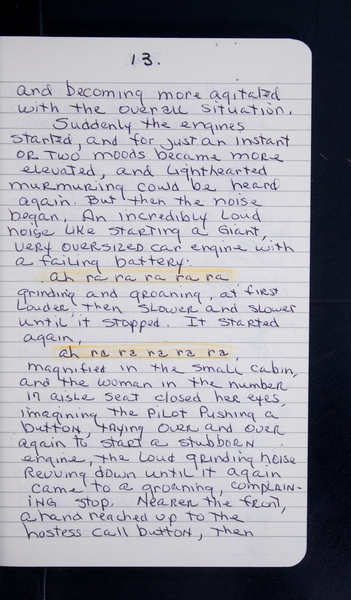 13.
and becoming more agitated
with the overall situation.
Suddenly the engines
started, and for just an instant
or two moods became more
elevated, and lighthearted
murmuring could be heard
again. But then the noise
began. An incredibly loud
noise like starting a giant,
very oversized car engine with
a failing battery:
ah ra ra ra ra ra
grinding and groaning, at first
louder then slower and slower
until it stopped. It started
again,
ah ra ra ra ra ra,
magnified in the small cabin,
and the woman in the number
17 aisle seat closed her eyes,
imagining the pilot pushing a
button, trying over and over
again to start a stubborn
engine, the loud grinding noise
revving down until it again
came to a groaning, complain-
ing stop. Nearer the front,
a hand reached up to the
hostess call button, then